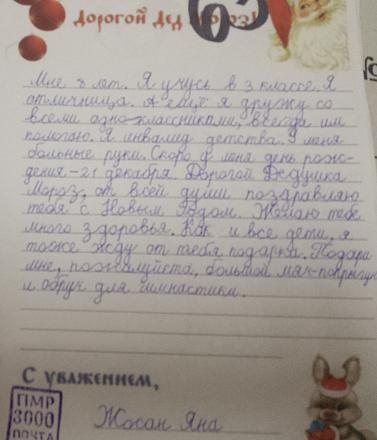 Дорогой Дед Мороз!
63
Мне 8 лет. Я учусь в 3 классе. Я
отличница. А ещё я дружу со
всеми одно-классниками, всегда им
помогаю. Я инвалид детства. У меня
больные руки. Скоро у меня день рож-
дения - 21 декабря. Дорогой Дедушка
Мороз, от всей души поздравляю
тебя с Новым Годом. Желаю тебе
много здоровья. Как и все дети, я
тоже жду от тебя подарка. Подари
мне, пожалуйста, большой мяч-попрыгун
и обруч для гимнастики.
С уважением,
ПМР
3000
ПОЧТА
Жосан Яна